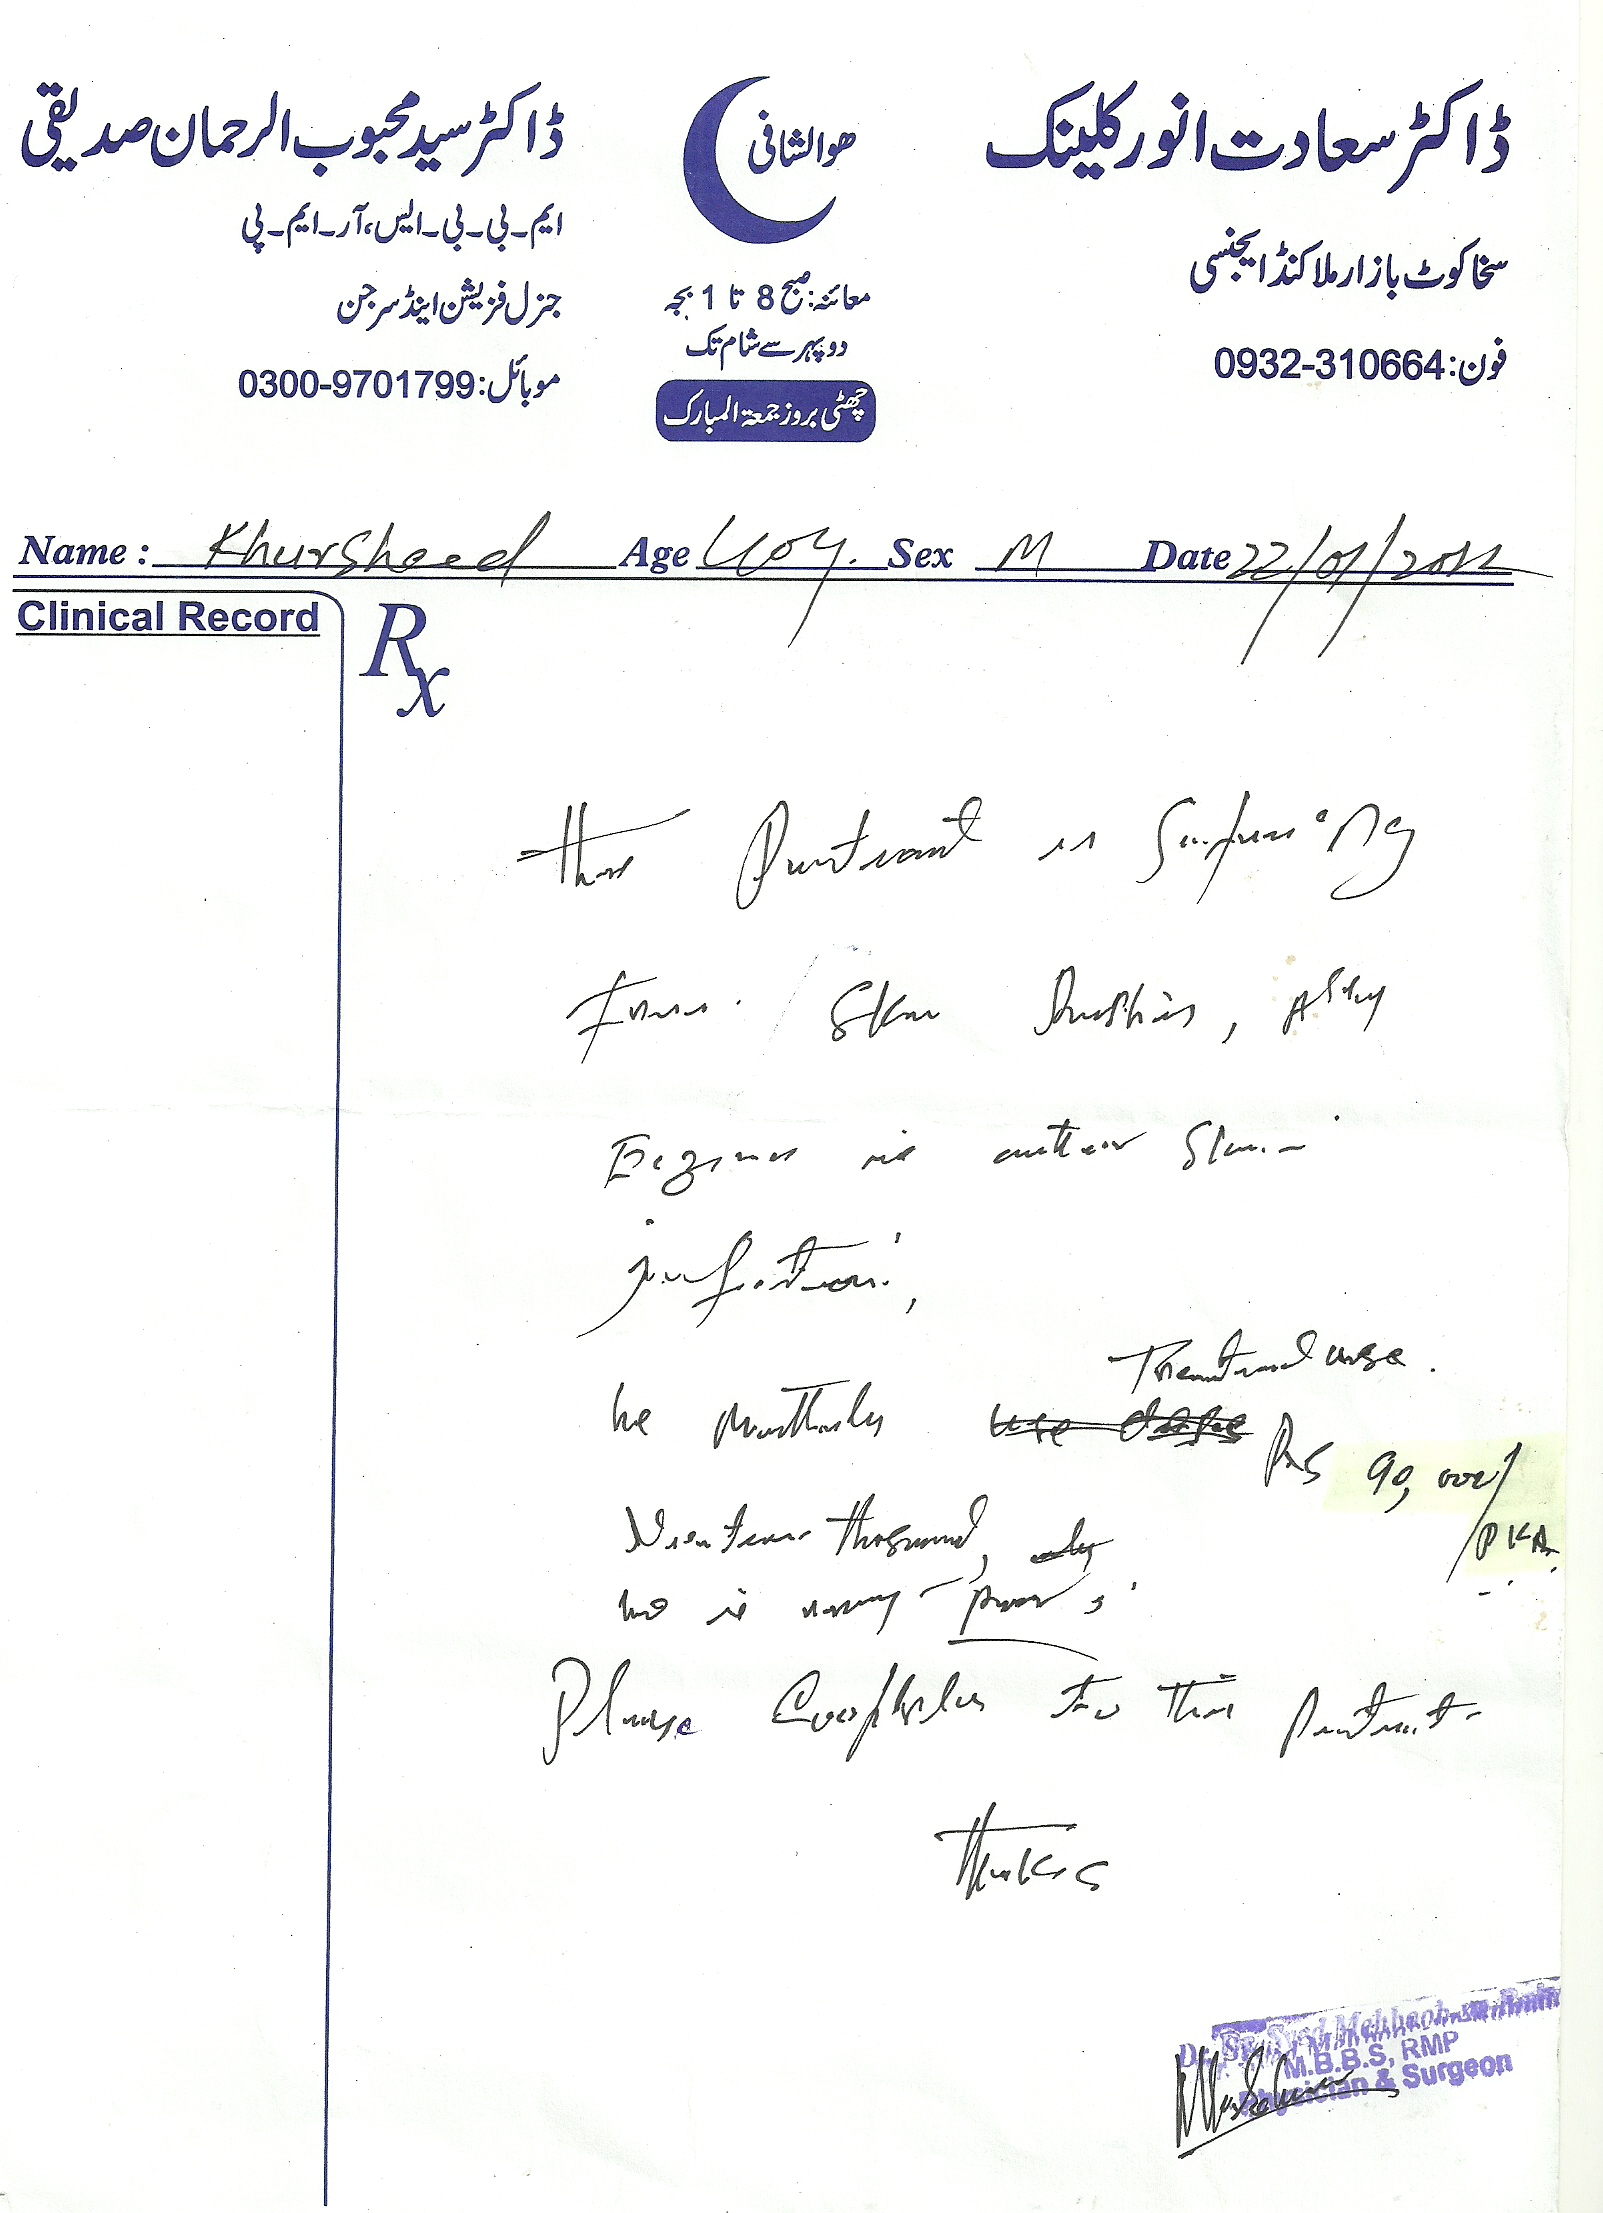 ڈاکٹر سعادت انور کلینک
سخاکوٹ بازار ملاکنڈ ایجنسی
فون: 0932-310664
ھوالشافی
معائنہ: صبح 8 تا 1 بجہ
دوپہر سے شام تک
چھٹی بروز جمعۃ المبارک
ڈاکٹر سید محبوب الرحمان صدیقی
ایم-بی-بی-ایس، آر-ایم-پی
جنرل فزیشن اینڈ سرجن
موبائل: 0300-9701799
Name: Khursheed Age 40y. Sex M Date 22/01/2012
Clinical Record
Rx
This Patient is
from Skin
Eczema is other Skin
infection,
Treatment use.
he Monthly use Rs 90,000/
PKR
thousand, only
he is very poor
Please to this Patient
Thanks
Dr. Syed Mehboob-ur-
M.B.B.S, RMP
Physician & Surgeon